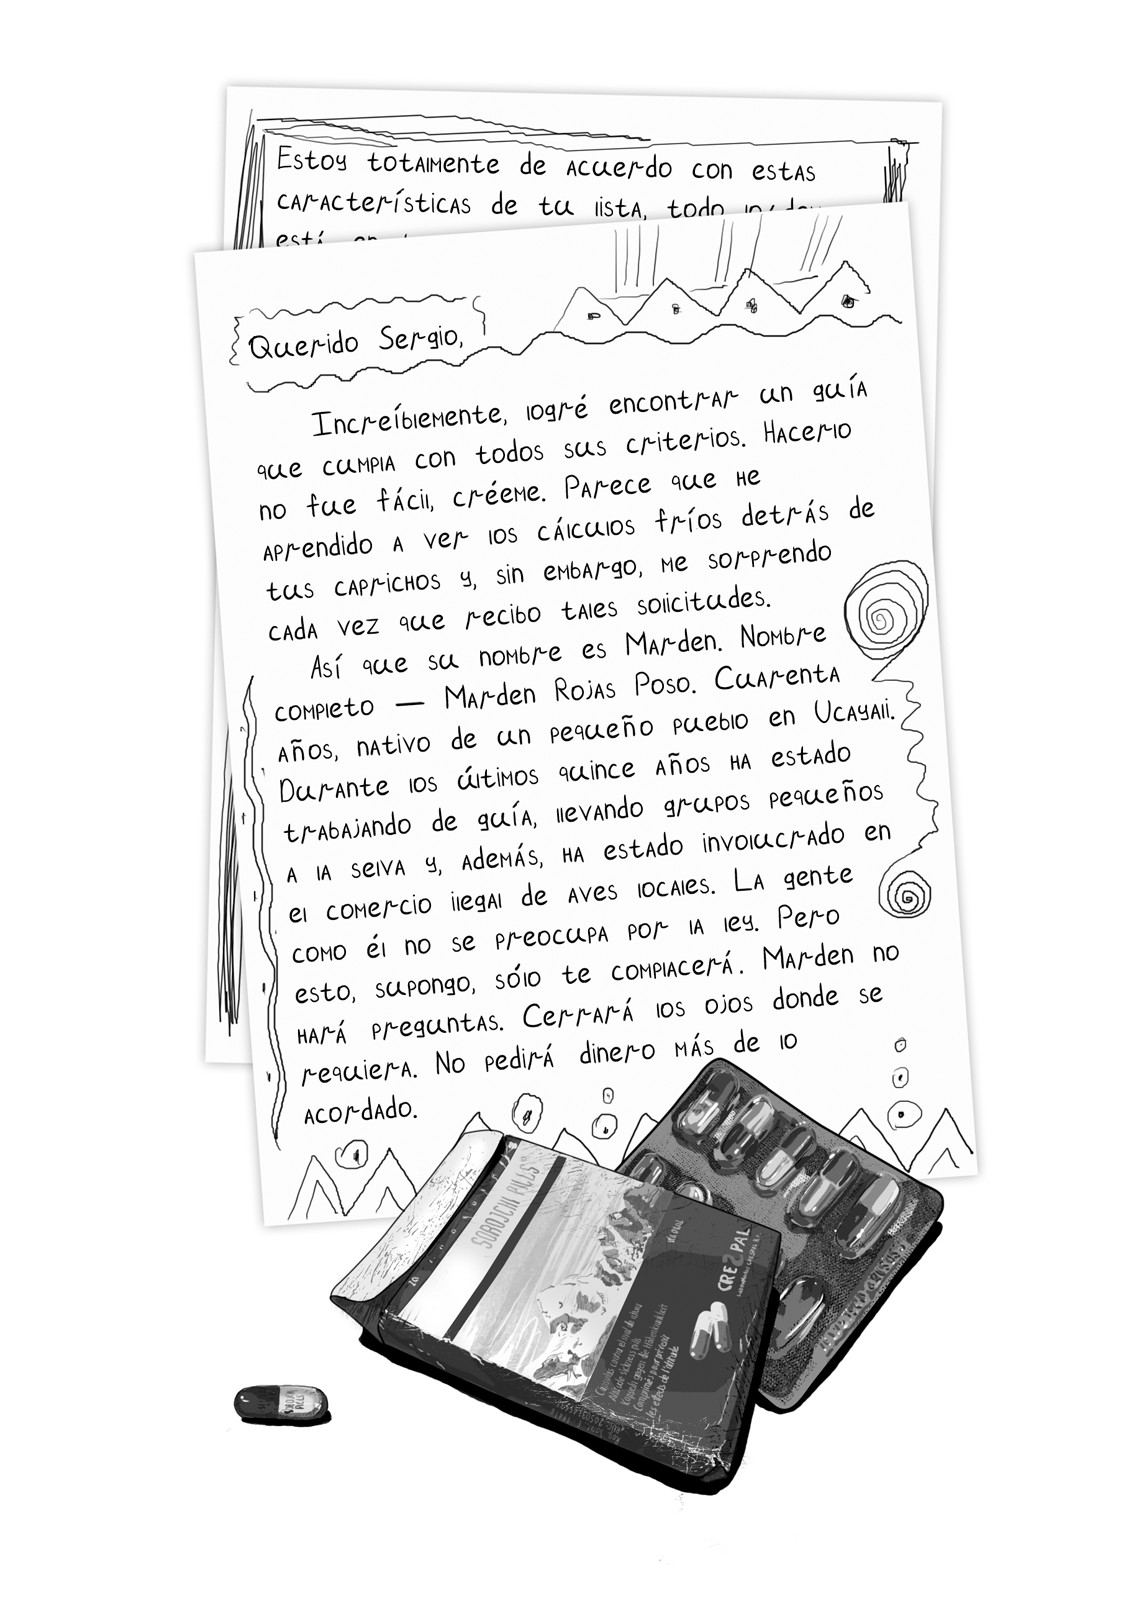 Estoy totalmente de acuerdo con estas
características de tu lista, todo
está en
Querido Sergio,
Increíblemente, logré encontrar un guía
que cumpla con todos sus criterios. Hacerlo
no fue fácil, créeme. Parece que he
aprendido a ver los cálculos fríos detrás de
tus caprichos y, sin embargo, me sorprendo
cada vez que recibo tales solicitudes.
Así que su nombre es Marden. Nombre
completo — Marden Rojas Poso. Cuarenta
años, nativo de un pequeño pueblo en Ucayali.
Durante los últimos quince años ha estado
trabajando de guía, llevando grupos pequeños
a la selva y, además, ha estado involucrado en
el comercio ilegal de aves locales. La gente
como él no se preocupa por la ley. Pero
esto, supongo, sólo te complacerá. Marden no
hará preguntas. Cerrará los ojos donde se
requiera. No pedirá dinero más de lo
acordado.
SOROJCHI PILLS
CRESPAL
Cápsulas contra el mal de altura
Altitude Sickness Pills
Kapseln gegen die Höhenkrankheit
Comprimés pour prévenir
les effets de l'altitude